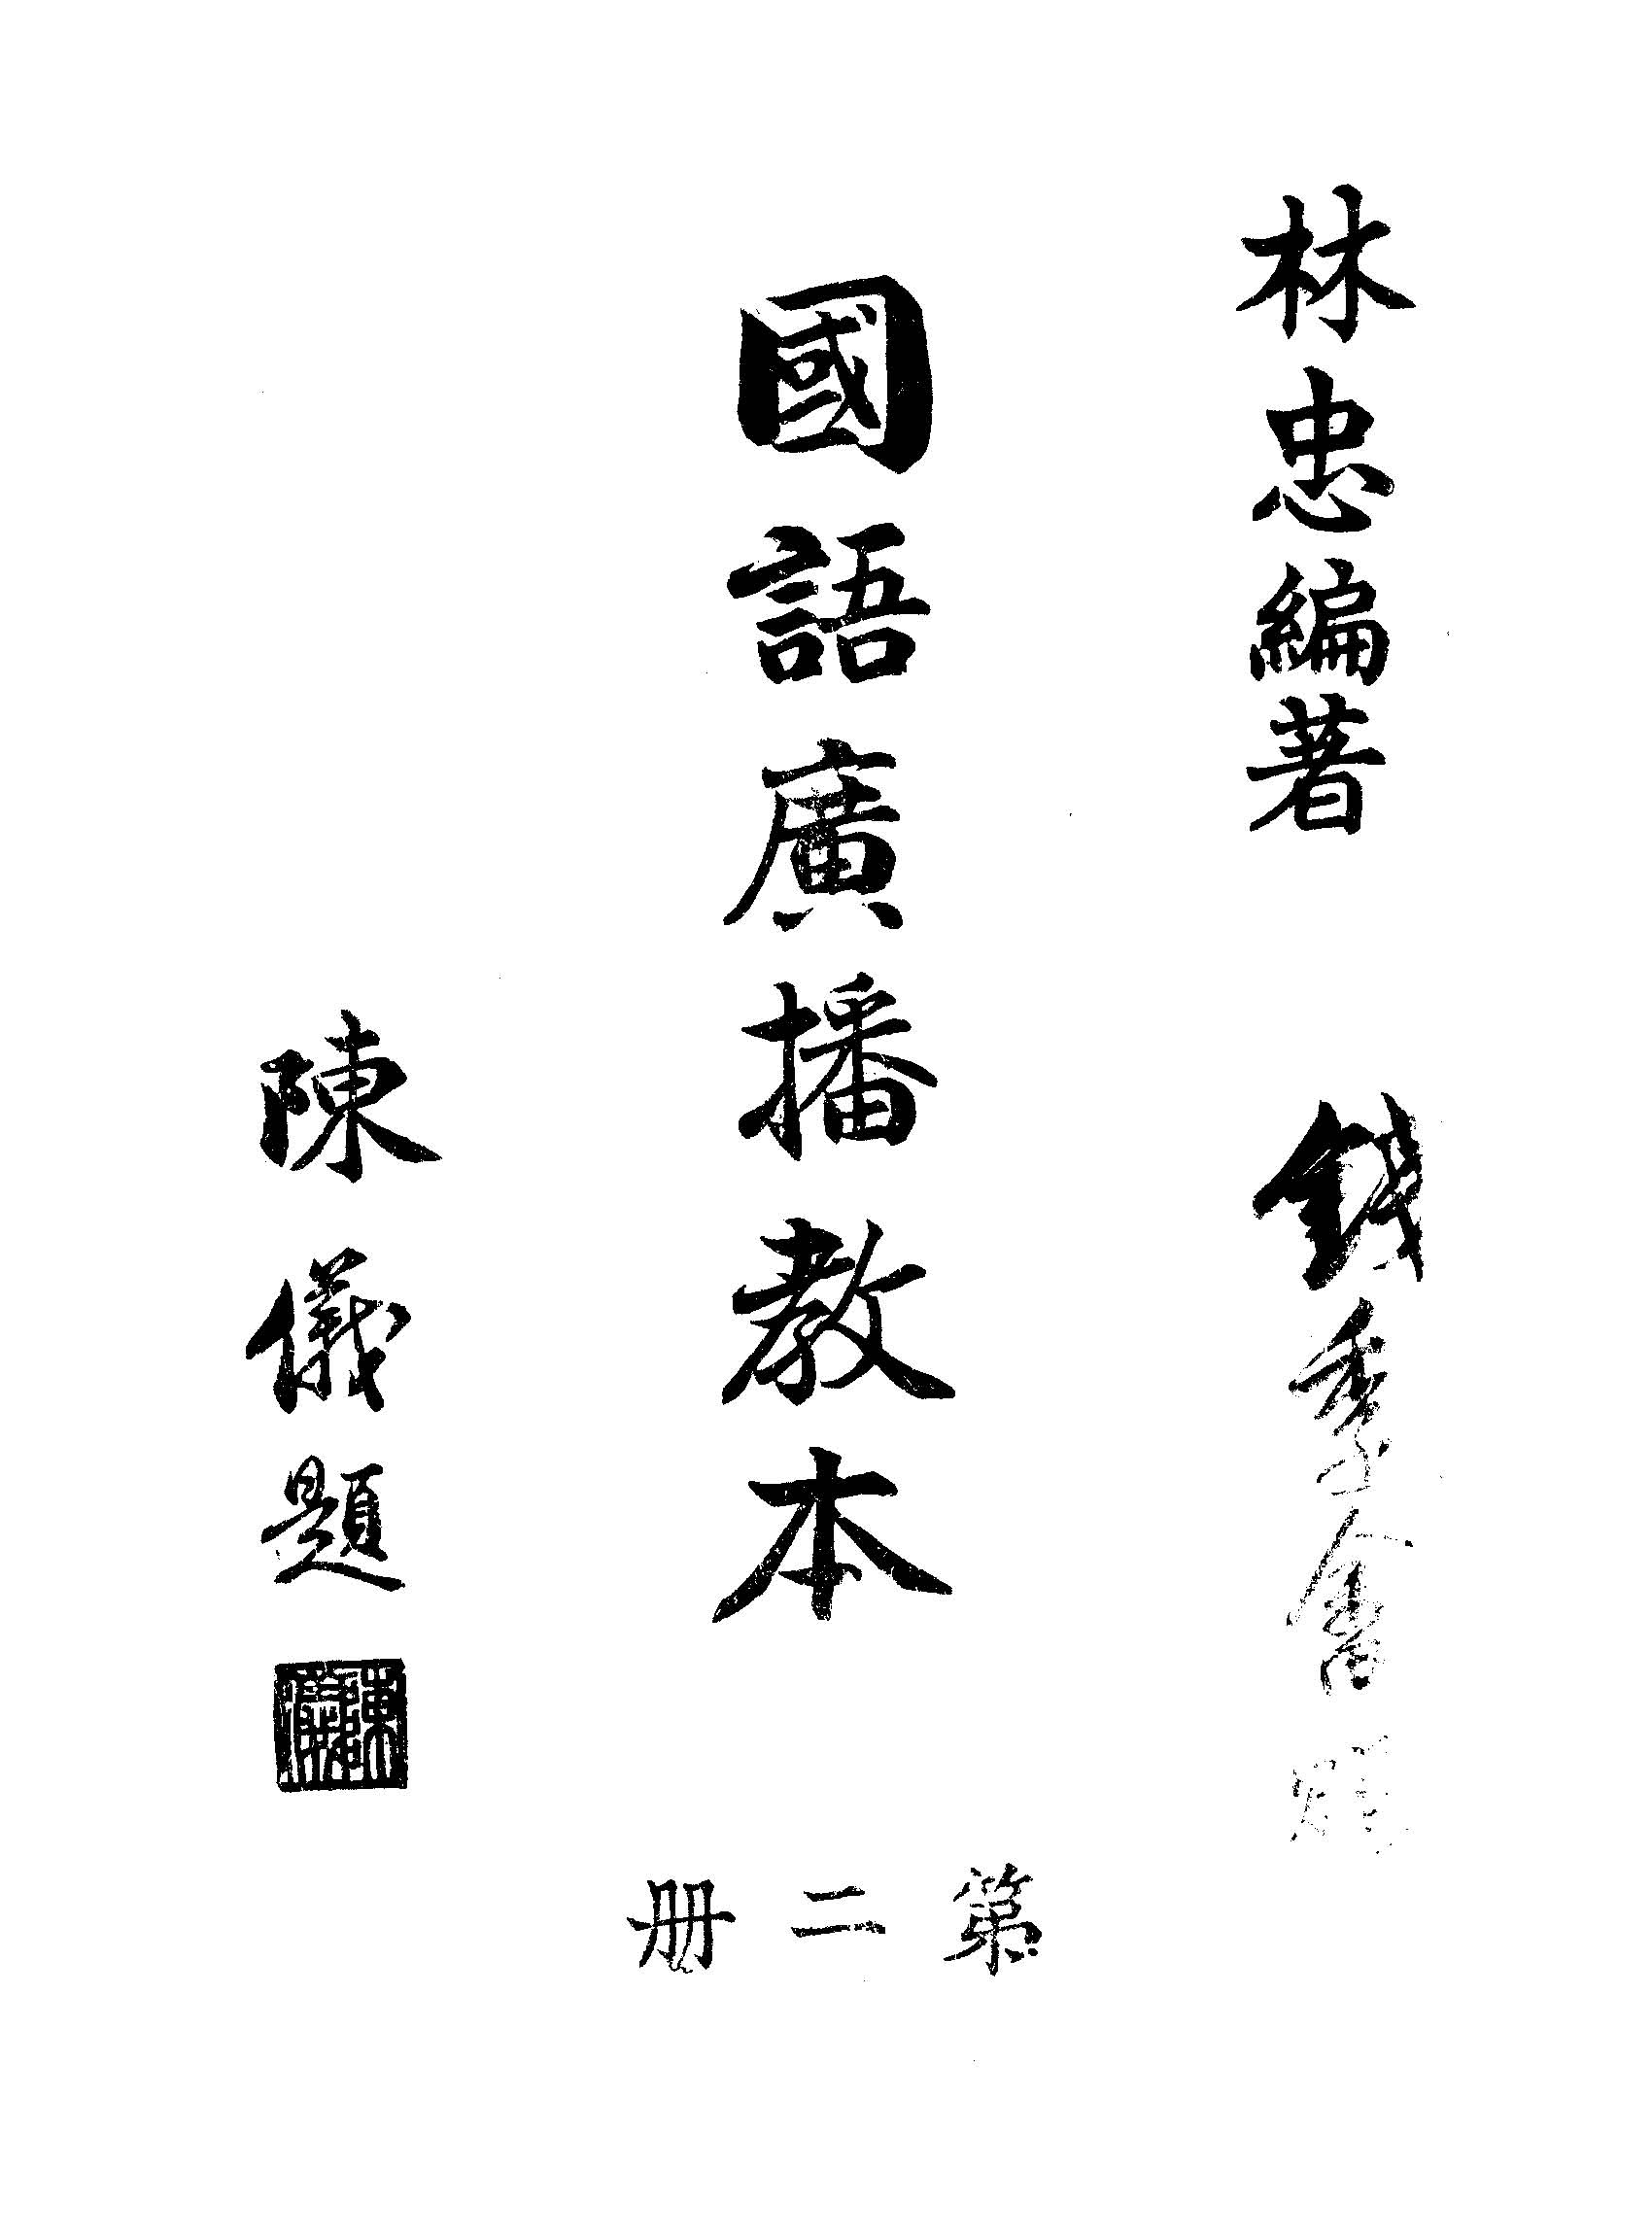 林忠編著
錢季會
國語廣播教本
第二册
陳儀題